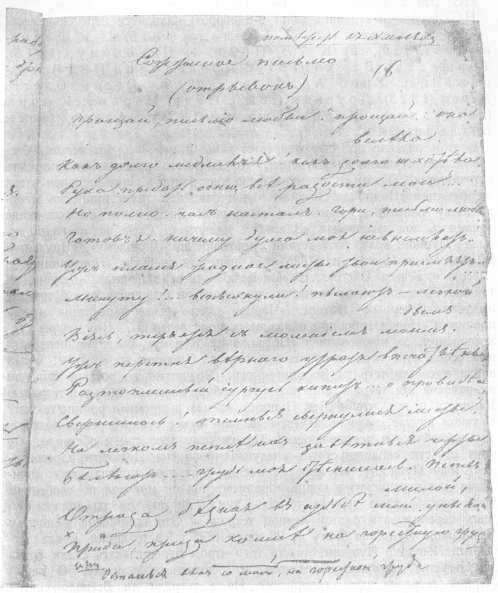 18
Сожженное письмо
(отрывокъ)
Прощай, письмо любви! прощай: она
велѣла
Какъ долго медлилъ я! какъ долго не хотѣла
Рука предать огню всѣ радости мои...
Но полно. часъ насталъ. Гори, письмо любви
Готовъ я. ничему душа моя не внемлетъ.
Ужъ пламя жадное листы твои приемлетъ
Минуту!... вспыхнули! пылаютъ — легкой
дымъ
Віясь, теряется съ моленіемъ моимъ.
Ужъ перстня вѣрнаго утратя впечатлѣнье
Растопленный сургучъ кипитъ... о провидѣнье
Свершилось! темные свернулися листы!
На легкомъ пеплѣ ихъ завѣтныя черты
Бѣлѣютъ.... грудь моя стѣснилась. Пепелъ
милой,
Отрада бѣдная въ судьбѣ моей унылой
на горестную грудь
или Останься векъ со мной, на горестной груди